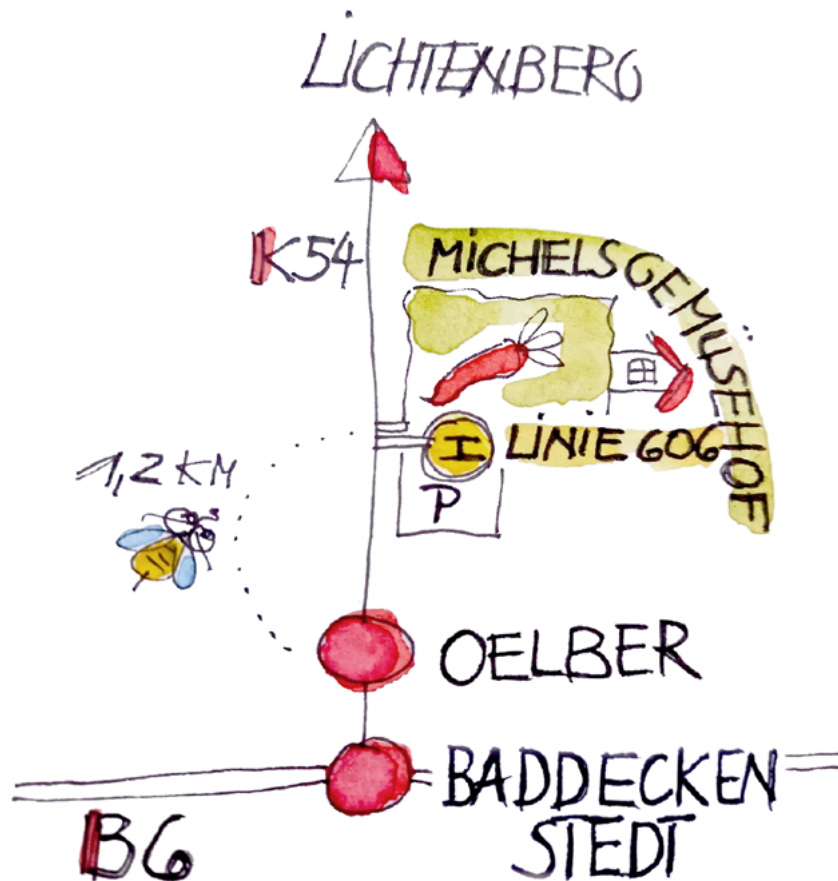 LiCHTENBERG
K54
MiCHELSGEMÜSEHOF
H LiNiE 606
1,2 KM
P
OELBER
BADDECKEN
STEDT
B6